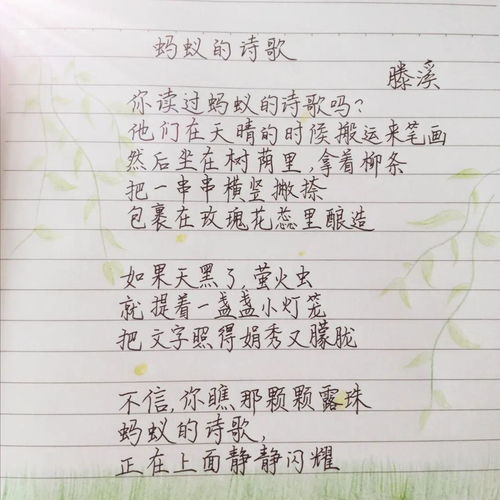 蚂蚁的诗歌
滕溪
你读过蚂蚁的诗歌吗?
他们在天晴的时候搬运来笔画
然后坐在树荫里,拿着柳条
把一串串横竖撇捺
包裹在玫瑰花蕊里酿造
如果天黑了,萤火虫
就提着一盏盏小灯笼
把文字照得娟秀又朦胧
不信,你瞧那颗颗露珠
蚂蚁的诗歌,
正在上面静静闪耀